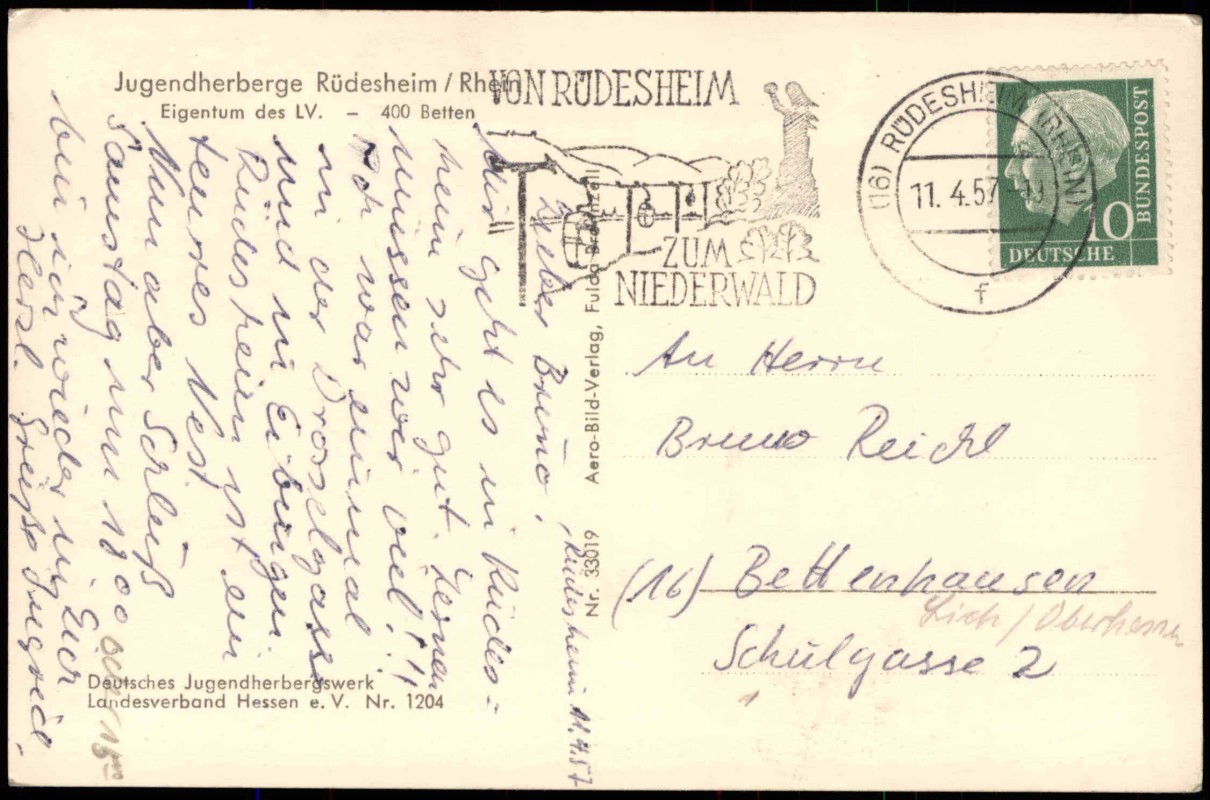 Jugendherberge Rüdesheim / Rhein
Eigentum des LV. – 400 Betten
VON RÜDESHEIM
ZUM
NIEDERWALD
(16) RÜDESHEIM (RHEIN)
11. 4. 57
f
10
DEUTSCHE
BUNDESPOST
Rüdesheim, 11.4.57
Lieber Bruno,
Mir geht es in Rüdes=
heim sehr gut. Lernen
müssen wir viel!!!
Ich war einmal
in der Drosselgasse
und in Eibingen.
Rüdesheim ist ein
teures Nest.
Nun aber Schluß
Samstag um 18 00 oder 15 00
bin ich wieder bei Euch
Herzl. Grüße Ingrid.
Aero-Bild-Verlag, Fulda
Nr. 33019
An Herrn
Bruno Reichl
(16) Bettenhausen
Lich / Oberhessen
Schulgasse 2
Deutsches Jugendherbergswerk
Landesverband Hessen e. V. Nr. 1204